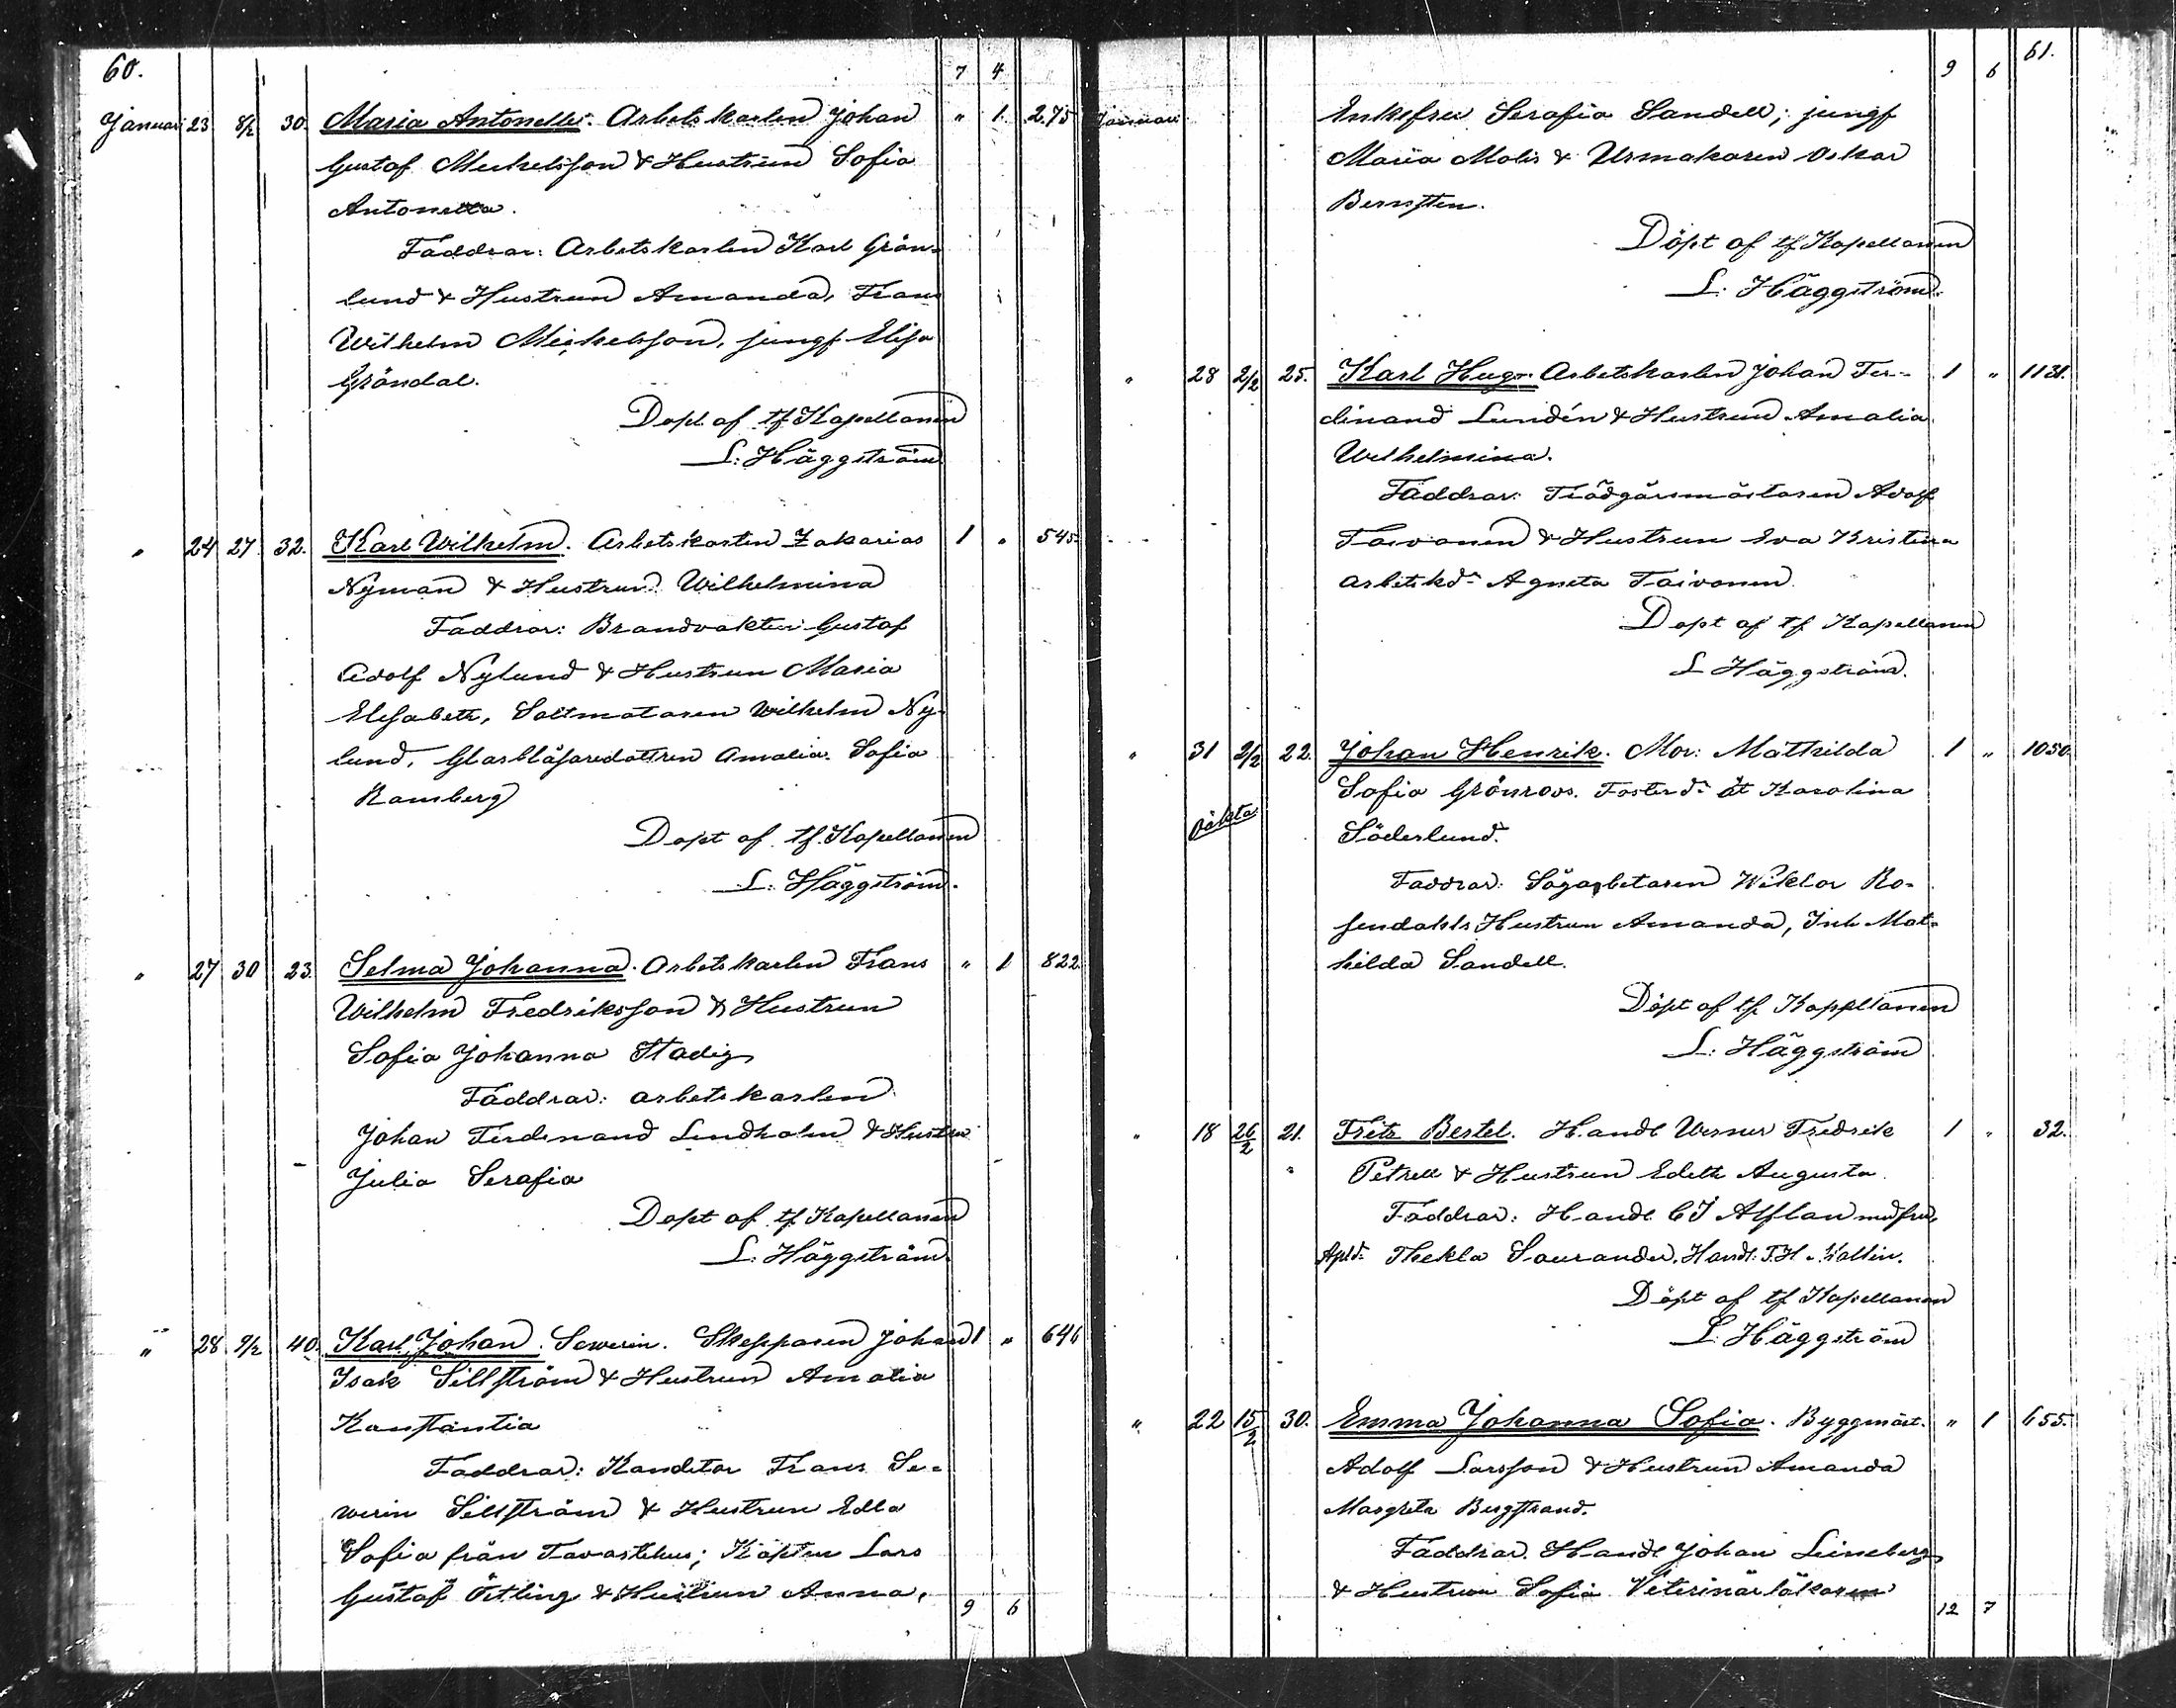 60.
7 4
Januari 23 8/2 30. Maria Antonetta. Arbetskarlen Johan " 1 275
Gustaf Michelsson & Hustrun Sofia
Antonetta.
Faddrar: Arbetskarlen Karl Grön-
lund & Hustrun Amanda, Frans
Wilhelm Michelsson, jungf Elisa
Gröndal.
Döpt af tf Kapellanen
L: Häggström
" 24 27 32. Karl Wilhelm. Arbetskarlen Zakarias 1 " 545
Nyman & Hustrun Wilhelmina
Faddrar: Brandvakten Gustaf
Adolf Nylund & Hustrun Maria
Elisabeth, Saltmätaren Wilhelm Ny-
lund, Glasblåsaredottren Amalia Sofia
Ramberg
Döpt af tf. Kapellanen
L: Häggström.
" 27 30 23. Selma Johanna. Arbetskarlen Frans " 1 822.
Wilhelm Fredriksson & Hustrun
Sofia Johanna Stadig
Faddrar: arbetskarlen
Johan Ferdinand Lindholm & Hustru
Julia Serafia
Döpt af tf Kapellanen
L: Häggström
" 28 9/2 40. Karl Johan. Sewerin. Skepparen Johan 1 " 646
Isak Sillström & Hustrun Amalia
Konstantia
Faddrar: Konditor Frans Se-
werin Sillström & Hustrun Edla
Sofia från Tavastehus; Kapten Lars
Gustaf Östling & Hustrun Anna,
9 6
61.
9 6
Januari Enkefru Serafia Sandell; jungf
Maria Molis & Urmakaren Oskar
Bernsten.
Döpt af tf Kapellanen
L: Häggström.
" 28 2/2 25. Karl Hugo. Arbetskarlen Johan Fer- 1 " 1131.
dinand Lundén & Hustrun Amalia
Wilhelmina.
Faddrar: Trädgårsmästaren Adolf
Toivonen & Hustrun Eva Kristina
arbetskd:r Agneta Toivonen
Döpt af tf Kapellanen
L Häggström.
" 31 2/2 22. Johan Henrik. Mor: Mathilda 1 " 1050
Sofia Grönroos. Fosterd:r åt Karolina
oäkta
Söderlund.
Faddrar: Sågarbetaren Wiktor Ro-
sendahls Hustrun Amanda, Inh Mat-
hilda Sandell.
Döpt af tf Kappellanen
L: Häggström
" 18 26/2 21. Fritz Bertel. Handl Werner Fredrik 1 " 32.
Petrell & Hustrun Edith Augusta
Faddrar: Handl C J Asplan med fru,
Thekla Saurander, Handl: F. H. Wallin.
Döpt af tf Kapellanen
L: Häggström
" 22 15/2 30. Emma Johanna Sofia. Byggmäst. " 1 655.
Adolf Larsson & Hustrun Amanda
Margreta Bergstrand.
Faddrar. Handl Johan Lineberg
& Hustrun Sofia Veterinärläkaren
12 7